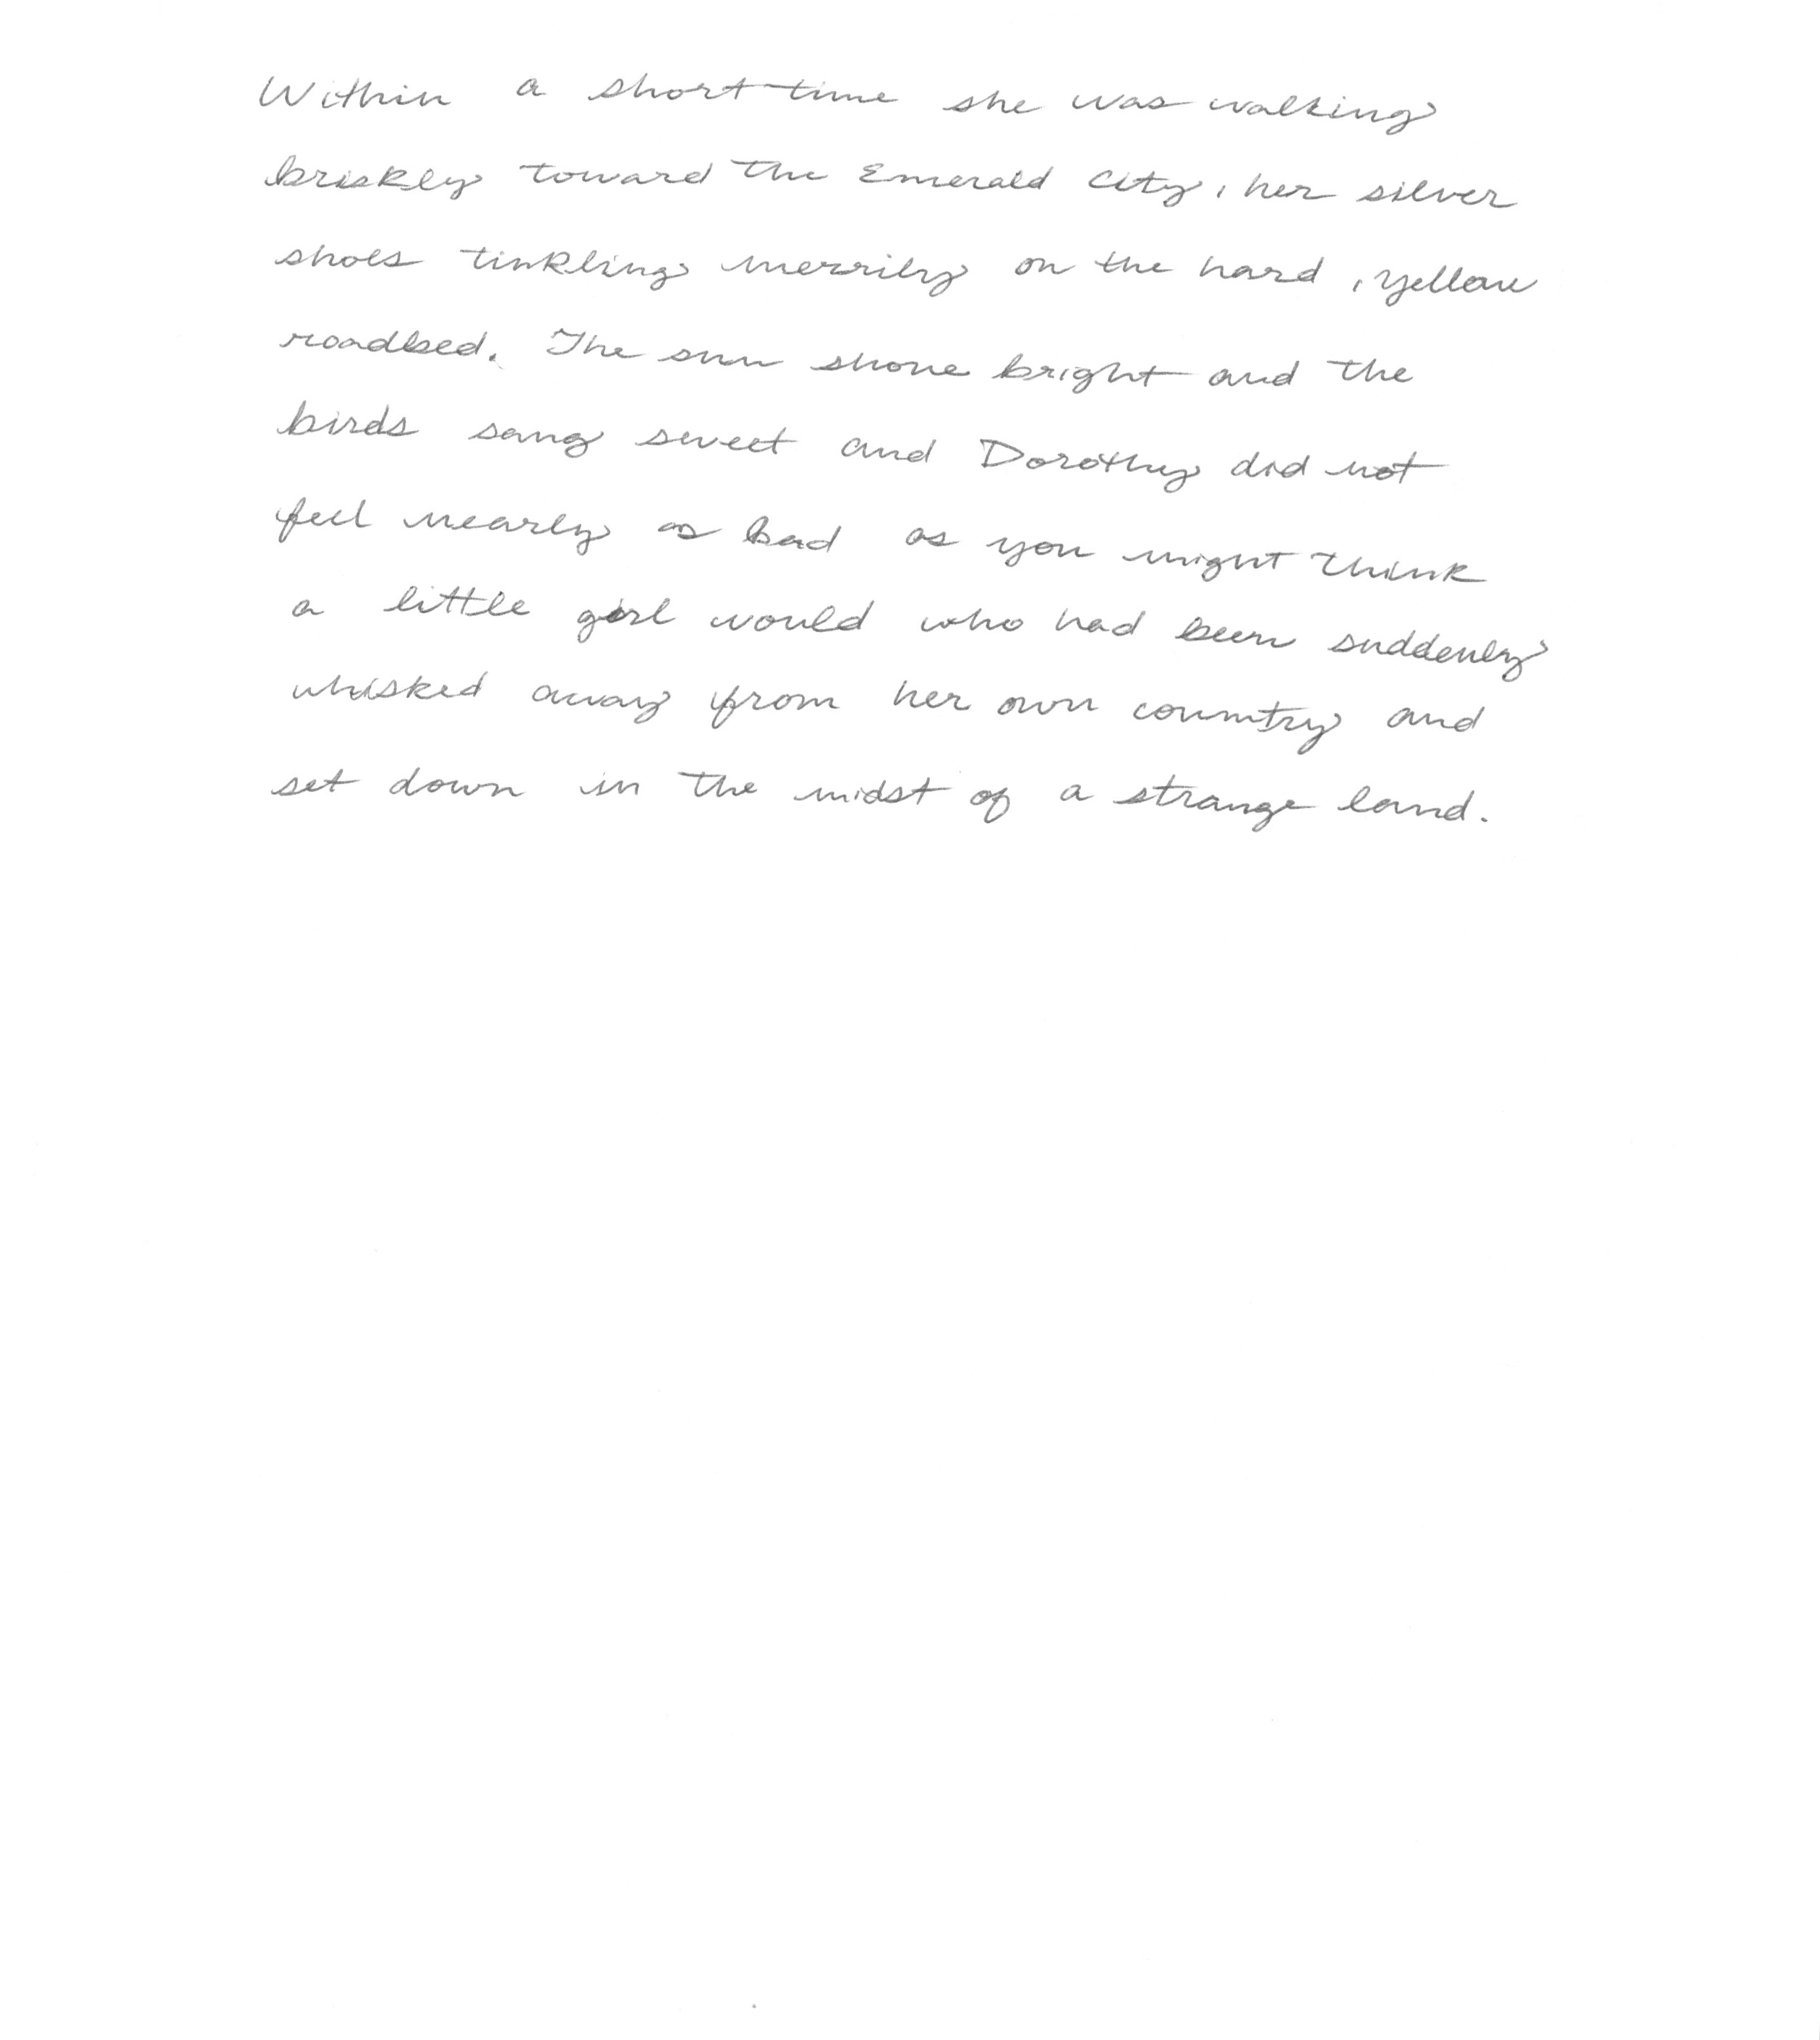 Within a short time she was walking
briskly toward the Emerald City, her silver
shoes tinkling merrily on the hard, yellow
roadbed. The sun shone bright and the
birds sang sweet and Dorothy did not
feel nearly as bad as you might think
a little girl would who had been suddenly
whisked away from her own country and
set down in the midst of a strange land.